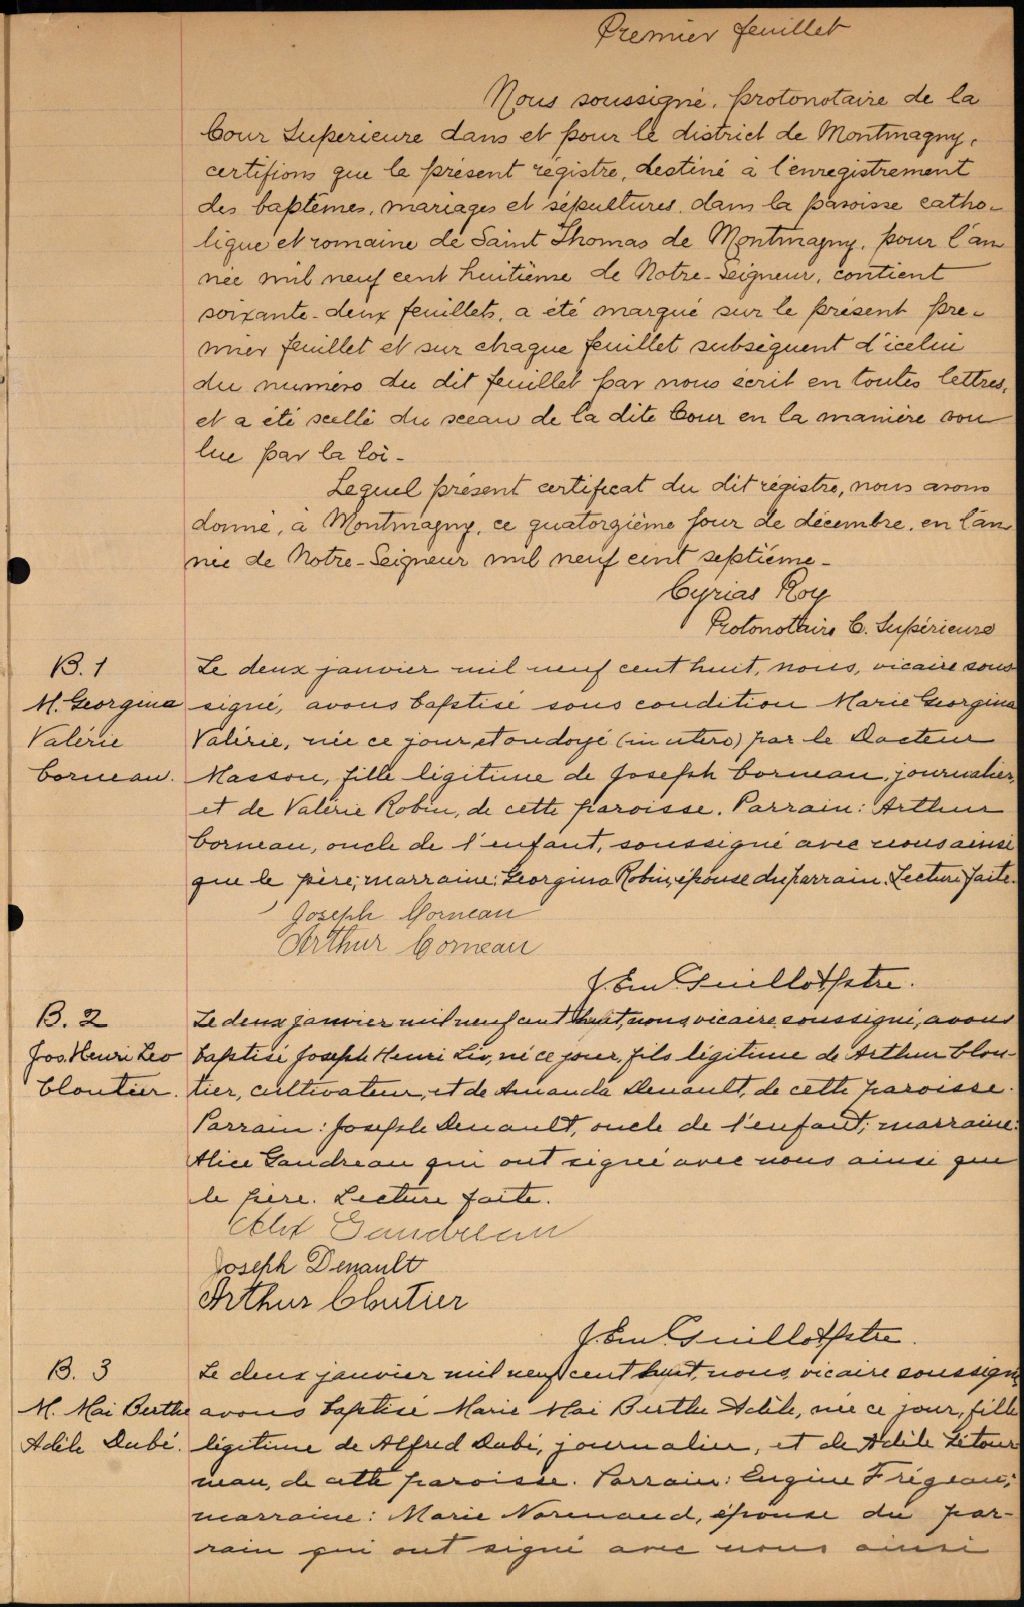 Premier feuillet
Nous soussigné, protonotaire de la
Cour Superieure dans et pour le district de Montmagny,
certifions que le présent régistre, destiné à l'enregistrement
des baptêmes, mariages et sépultures, dans la paroisse catho-
lique et romaine de Saint Thomas de Montmagny, pour l'an
née mil neuf cent huitième de Notre-Seigneur, contient
soixante-deux feuillets, a été marqué sur le présent pre-
mier feuillet et sur chaque feuillet subséquent d'icelui
du numéro du dit feuillet par nous écrit en toutes lettres,
et a été scellé du sceau de la dite Cour en la manière vou
lue par la loi-
Lequel présent certificat du dit régistre, nous avons
donné, à Montmagny, ce quatorzième jour de décembre, en l'an
née de Notre-Seigneur mil neuf cent septième-
Cyrias Roy
Protonotaire C. Supérieure
B. 1
M. Georgina
Valérie
Corneau.
Le deux janvier mil neuf cent huit, nous, vicaire sous
signé, avons baptisé sous condition Marie Georgina
Valérie, née ce jour, et ondoyé (in utero) par le Docteur
Masson, fille légitime de Joseph Corneau, journalier,
et de Valérie Robin, de cette paroisse. Parrain: Arthur
Corneau, oncle de l'enfant, soussigné avec nous ainsi
que le père; marraine: Georgina Robin, épouse du parrain. Lecture faite.
Joseph Corneau
Arthur Corneau
J. Em. Guillot, ptre.
B. 2
Jos. Henri Leo
Cloutier.
Le deux janvier mil neuf cent huit, nous, vicaire soussigné, avons
baptisé Joseph Henri Léo, né ce jour, fils légitime de Arthur Clou-
tier, cultivateur, et de Amanda Denault, de cette paroisse.
Parrain: Joseph Denault, oncle de l'enfant; marraine:
Alice Gaudreau qui ont signé avec nous ainsi que
le père. Lecture faite.
Gaudreau
Joseph Denault
Arthur Cloutier
J. Em. Guillot, ptre.
B. 3
M. Mai Berthe
Adèle Dubé.
Le deux janvier mil neuf cent huit, nous, vicaire soussigné
avons baptisé Marie Mai Berthe Adèle, née ce jour, fille
légitime de Alfred Dubé, journalier, et de Adèle Létour
neau, de cette paroisse. Parrain: Eugène Frégeau;
marraine: Marie Normand, épouse du par-
rain qui ont signé avec nous ainsi